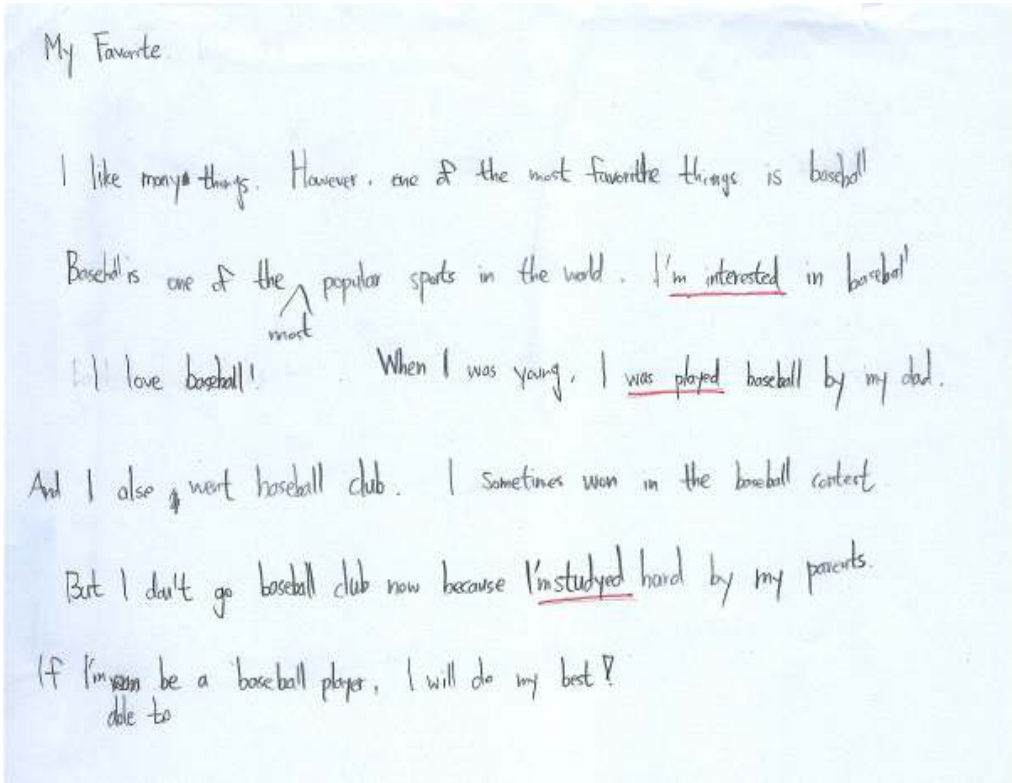 My Favorite.
I like many things. However, one of the most favorithe things is baseball
Baseball is one of the most popular sports in the world. I'm interested in baseball
I love baseball! When I was young, I was played baseball by my dad.
And I also went baseball club. I sometimes won in the baseball contest
But I don't go baseball club now because I'm studyed hard by my parents.
If I'm able to be a baseball player, I will do my best!